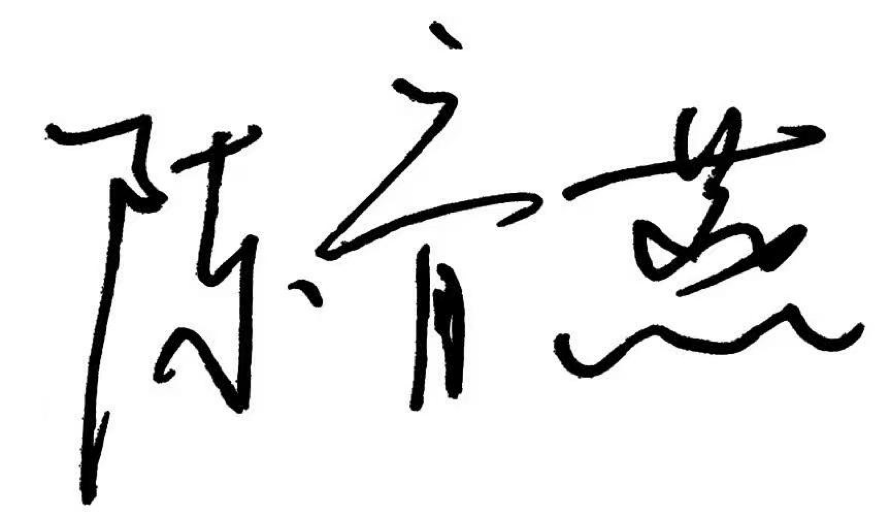 陈育燕